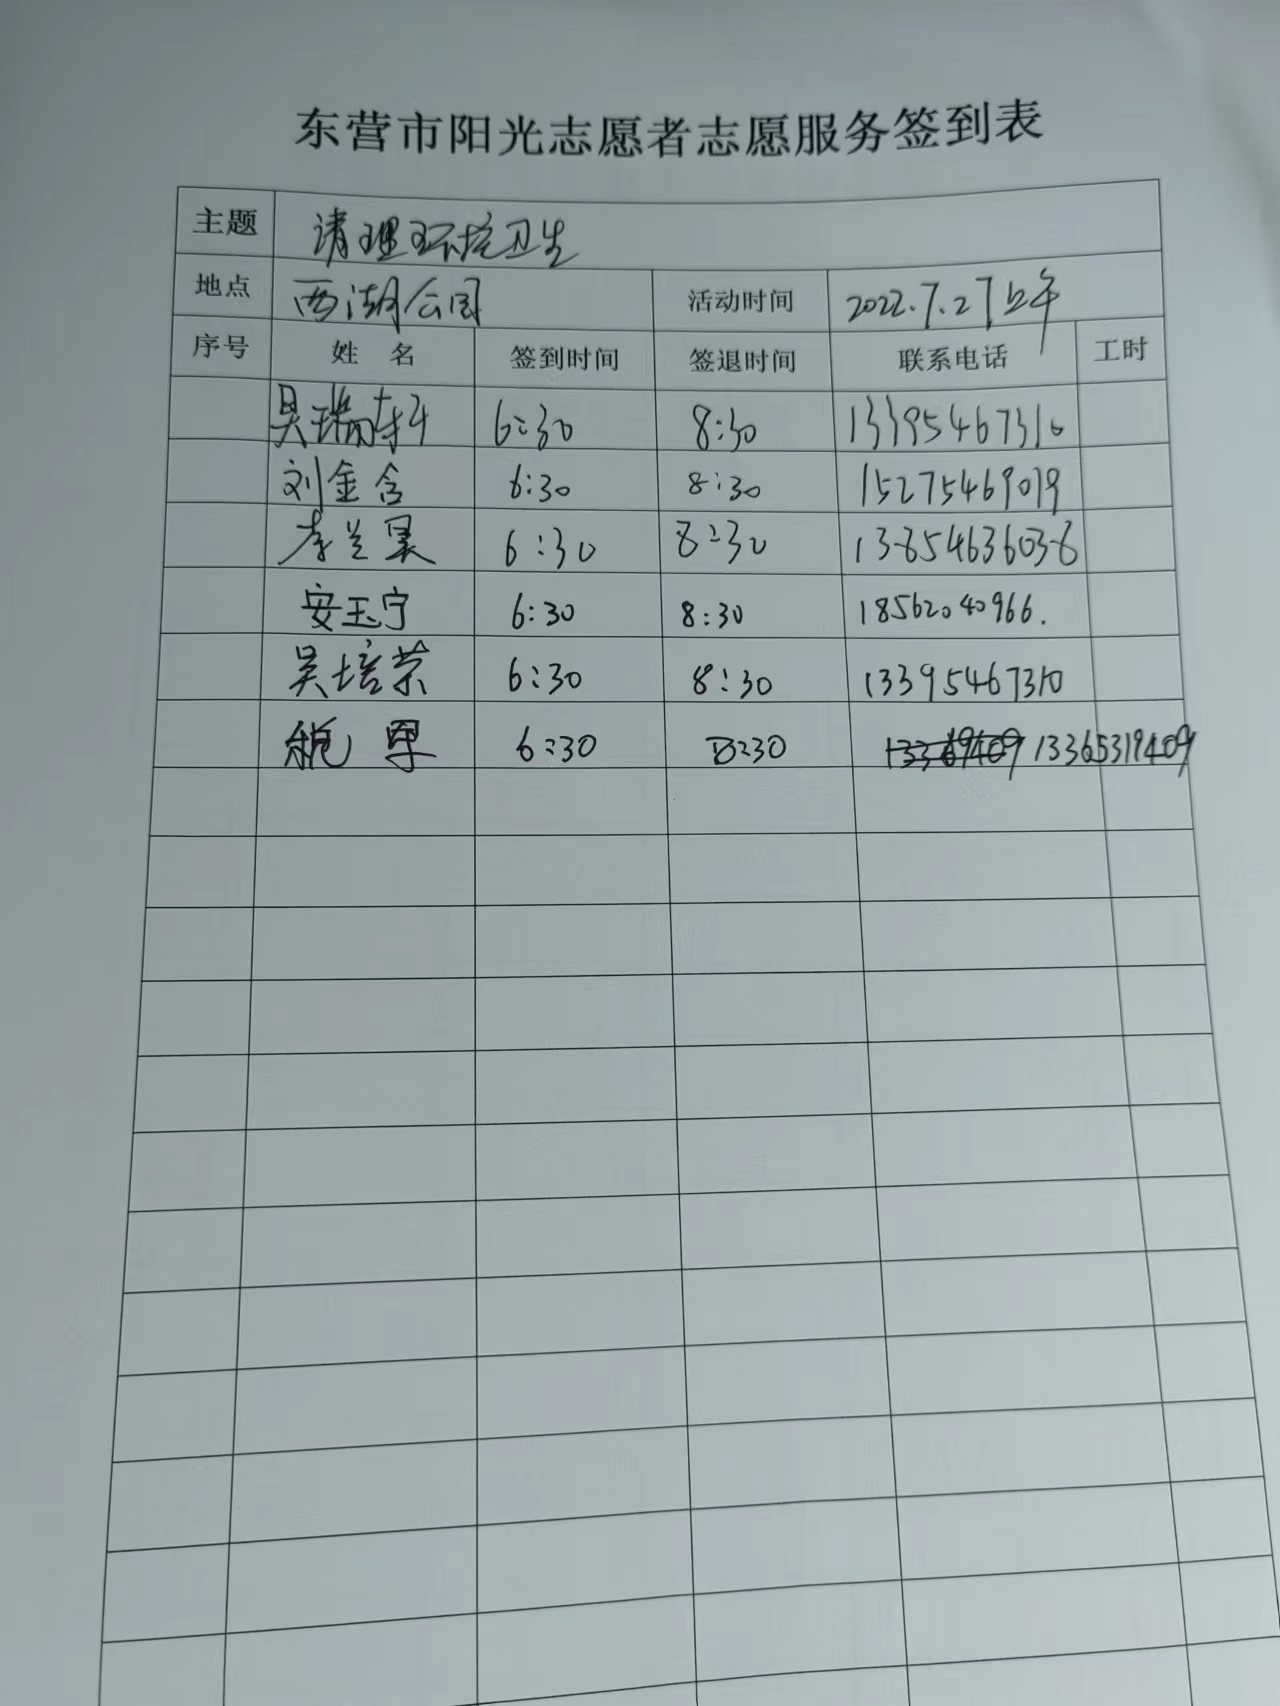 东营市阳光志愿者志愿服务签到表
主题 清理环境卫生
地点 西湖公园 活动时间 2022.7.27上午
序号 姓名 签到时间 签退时间 联系电话 工时
吴瑞 6:30 8:30 13395467310
刘金含 6:30 8:30 15275469019
李兰昊 6:30 8:30 13854636038
安玉宁 6:30 8:30 18562040966.
吴培荣 6:30 8:30 13395467310
6:30 8:30 13365319409